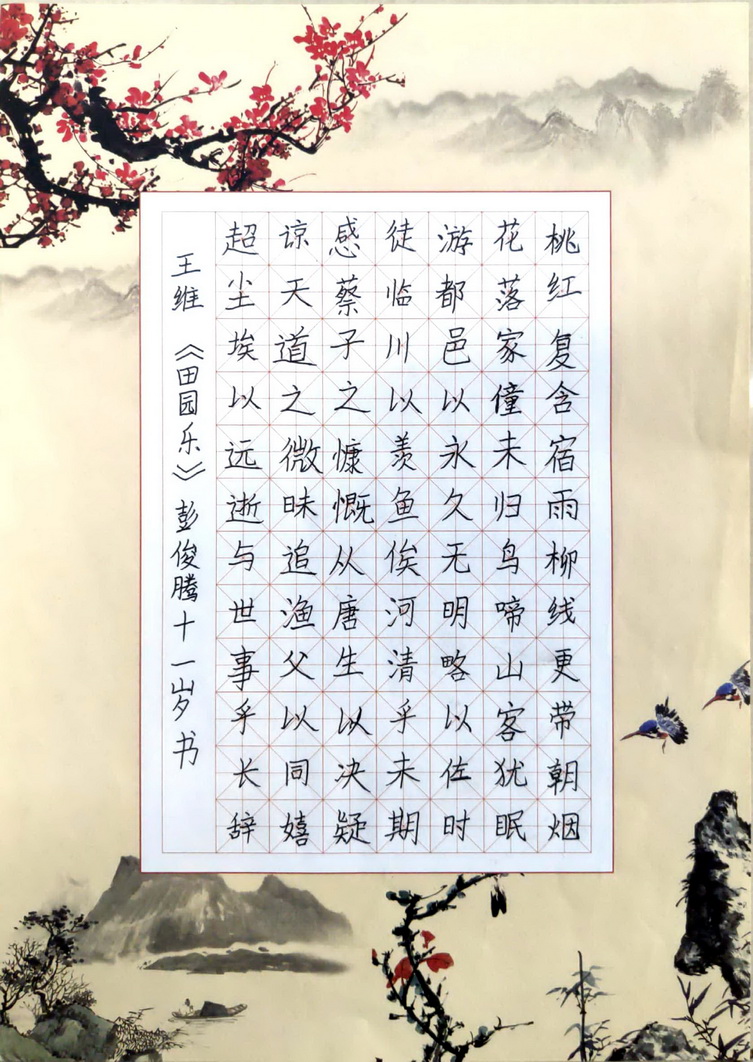 桃红复含宿雨柳线更带朝烟
花落家僮未归鸟啼山客犹眠
游都邑以永久无明略以佐时
徒临川以羡鱼俟河清乎未期
感蔡子之慷慨从唐生以决疑
谅天道之微昧追渔父以同嬉
超尘埃以远逝与世事乎长辞
王维《田园乐》彭俊腾十一岁书